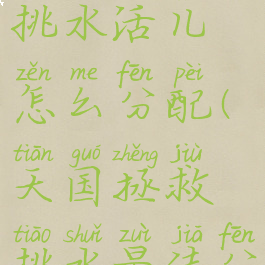 挑水活儿
zěn me fēn pèi
怎么分配(
tiān guó zhěng jiù
天国拯救
tiāo shuǐ zuì jiā fēn
挑水最佳分